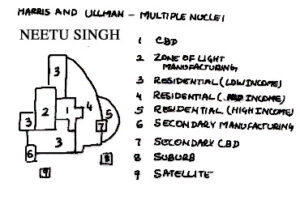 HARRIS AND ULLMAN - MULTIPLE NUCLEI
NEETU SINGH
1 CBD
2 ZONE OF LIGHT
MANUFACTURING
3 RESIDENTIAL (LOW INCOME)
4 RESIDENTIAL ( INCOME)
5 RESIDENTIAL (HIGH INCOME)
6 SECONDARY MANUFACTURING
7 SECONDARY CBD
8 SUBURB
9 SATELLITE
3
1
4
2
5
3
7
3
6
8
9